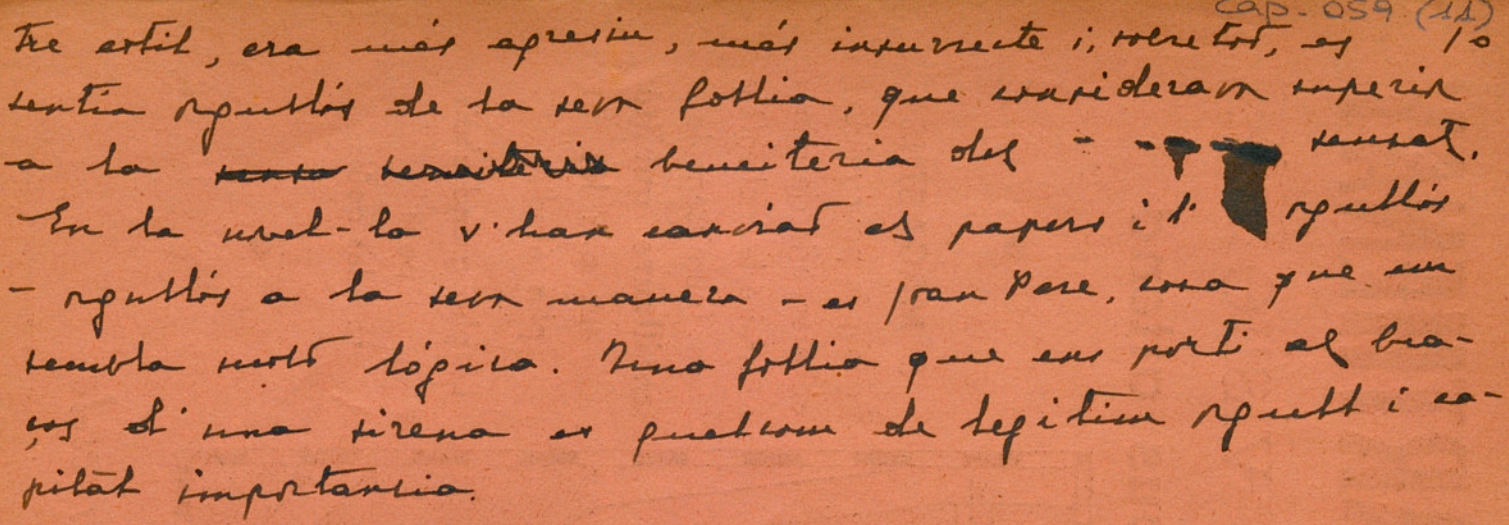 cap. 059 (11)
tre estil, era més agresiu, més insurrecte i, sobretot, es
sentia orgullós de la seva follia, que considerava superior
a la beneiteria del sensat.
En la novel-la s'han canviat els papers i l' orgullós
- orgullós a la seva manera - es Joan Pere, cosa que em
sembla molt lógica. Una follia que ens porti als bra-
ços d'una sirena es quelcom de legitim orgull i ca-
pitàl importancia.